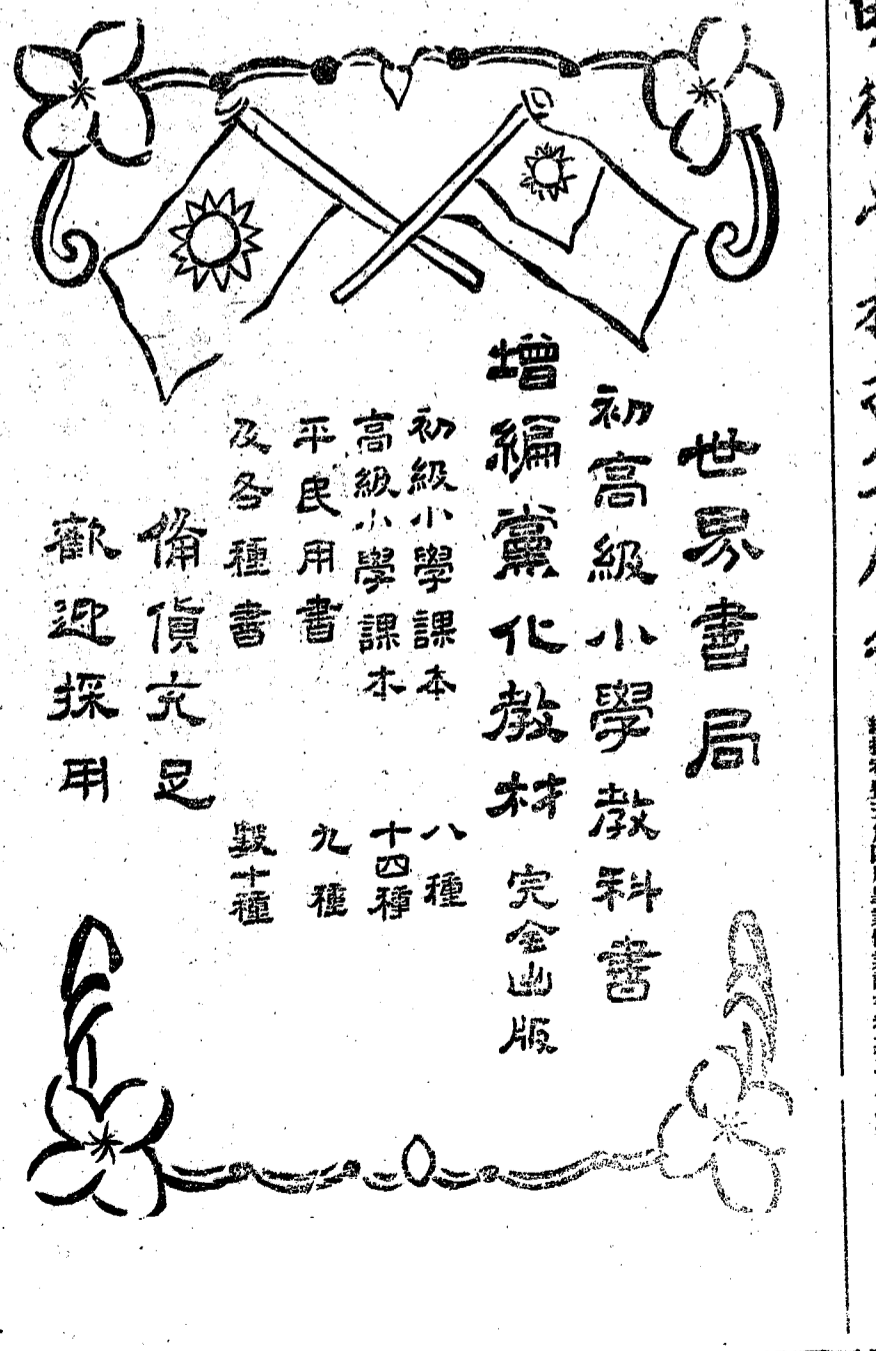 世界書局
初高級小學教科書
增編黨化教材 完全出版
初級小學課本 八種
高級小學課本 十四種
平民用書 九種
及各種書 數十種
備貨充足
歡迎採用